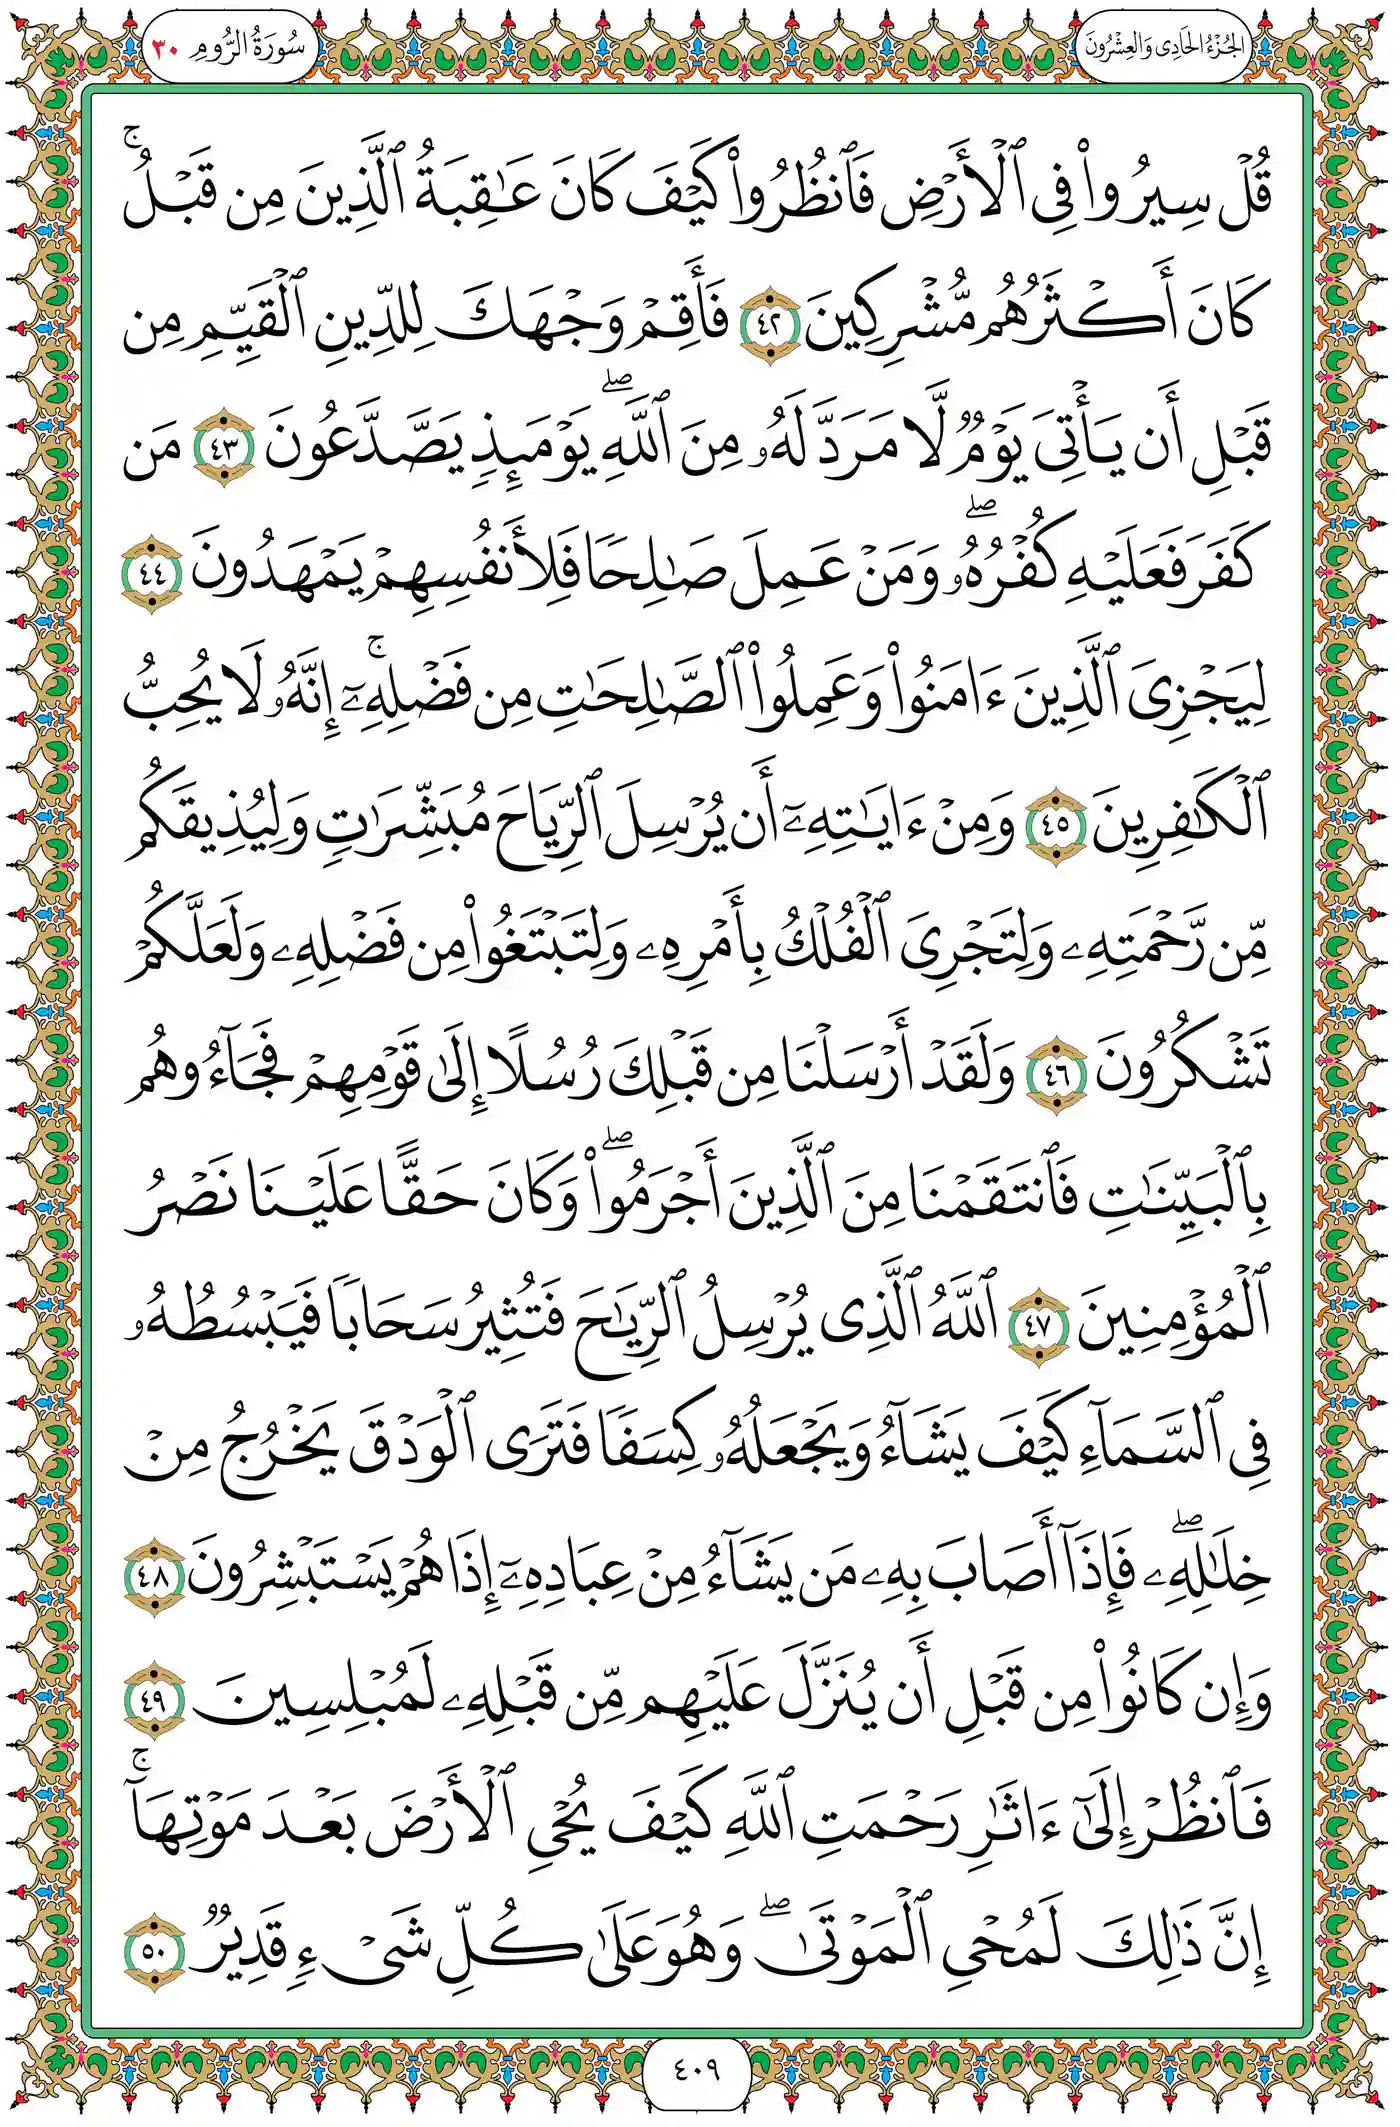 الجُزْءُ الحَادِى وَالعِشْرُونَ
سُورَةُ الرُّومِ ٣٠
قُلۡ سِيرُواْ فِي ٱلۡأَرۡضِ فَٱنظُرُواْ كَيۡفَ كَانَ عَٰقِبَةُ ٱلَّذِينَ مِن قَبۡلُۚ
كَانَ أَكۡثَرُهُم مُّشۡرِكِينَ ٤٢ فَأَقِمۡ وَجۡهَكَ لِلدِّينِ ٱلۡقَيِّمِ مِن
قَبۡلِ أَن يَأۡتِيَ يَوۡمٞ لَّا مَرَدَّ لَهُۥ مِنَ ٱللَّهِۖ يَوۡمَئِذٖ يَصَّدَّعُونَ ٤٣ مَن
كَفَرَ فَعَلَيۡهِ كُفۡرُهُۥۖ وَمَنۡ عَمِلَ صَٰلِحٗا فَلِأَنفُسِهِمۡ يَمۡهَدُونَ ٤٤
لِيَجۡزِيَ ٱلَّذِينَ ءَامَنُواْ وَعَمِلُواْ ٱلصَّٰلِحَٰتِ مِن فَضۡلِهِۦٓۚ إِنَّهُۥ لَا يُحِبُّ
ٱلۡكَٰفِرِينَ ٤٥ وَمِنۡ ءَايَٰتِهِۦٓ أَن يُرۡسِلَ ٱلرِّيَاحَ مُبَشِّرَٰتٖ وَلِيُذِيقَكُم
مِّن رَّحۡمَتِهِۦ وَلِتَجۡرِيَ ٱلۡفُلۡكُ بِأَمۡرِهِۦ وَلِتَبۡتَغُواْ مِن فَضۡلِهِۦ وَلَعَلَّكُمۡ
تَشۡكُرُونَ ٤٦ وَلَقَدۡ أَرۡسَلۡنَا مِن قَبۡلِكَ رُسُلًا إِلَىٰ قَوۡمِهِمۡ فَجَآءُوهُم
بِٱلۡبَيِّنَٰتِ فَٱنتَقَمۡنَا مِنَ ٱلَّذِينَ أَجۡرَمُواْۖ وَكَانَ حَقًّا عَلَيۡنَا نَصۡرُ
ٱلۡمُؤۡمِنِينَ ٤٧ ٱللَّهُ ٱلَّذِي يُرۡسِلُ ٱلرِّيَٰحَ فَتُثِيرُ سَحَابٗا فَيَبۡسُطُهُۥ
فِي ٱلسَّمَآءِ كَيۡفَ يَشَآءُ وَيَجۡعَلُهُۥ كِسَفٗا فَتَرَى ٱلۡوَدۡقَ يَخۡرُجُ مِنۡ
خِلَٰلِهِۦۖ فَإِذَآ أَصَابَ بِهِۦ مَن يَشَآءُ مِنۡ عِبَادِهِۦٓ إِذَا هُمۡ يَسۡتَبۡشِرُونَ ٤٨
وَإِن كَانُواْ مِن قَبۡلِ أَن يُنَزَّلَ عَلَيۡهِم مِّن قَبۡلِهِۦ لَمُبۡلِسِينَ ٤٩
فَٱنظُرۡ إِلَىٰٓ ءَاثَٰرِ رَحۡمَتِ ٱللَّهِ كَيۡفَ يُحۡيِ ٱلۡأَرۡضَ بَعۡدَ مَوۡتِهَآۚ
إِنَّ ذَٰلِكَ لَمُحۡيِ ٱلۡمَوۡتَىٰۖ وَهُوَ عَلَىٰ كُلِّ شَيۡءٖ قَدِيرٞ ٥٠
٤٠٩